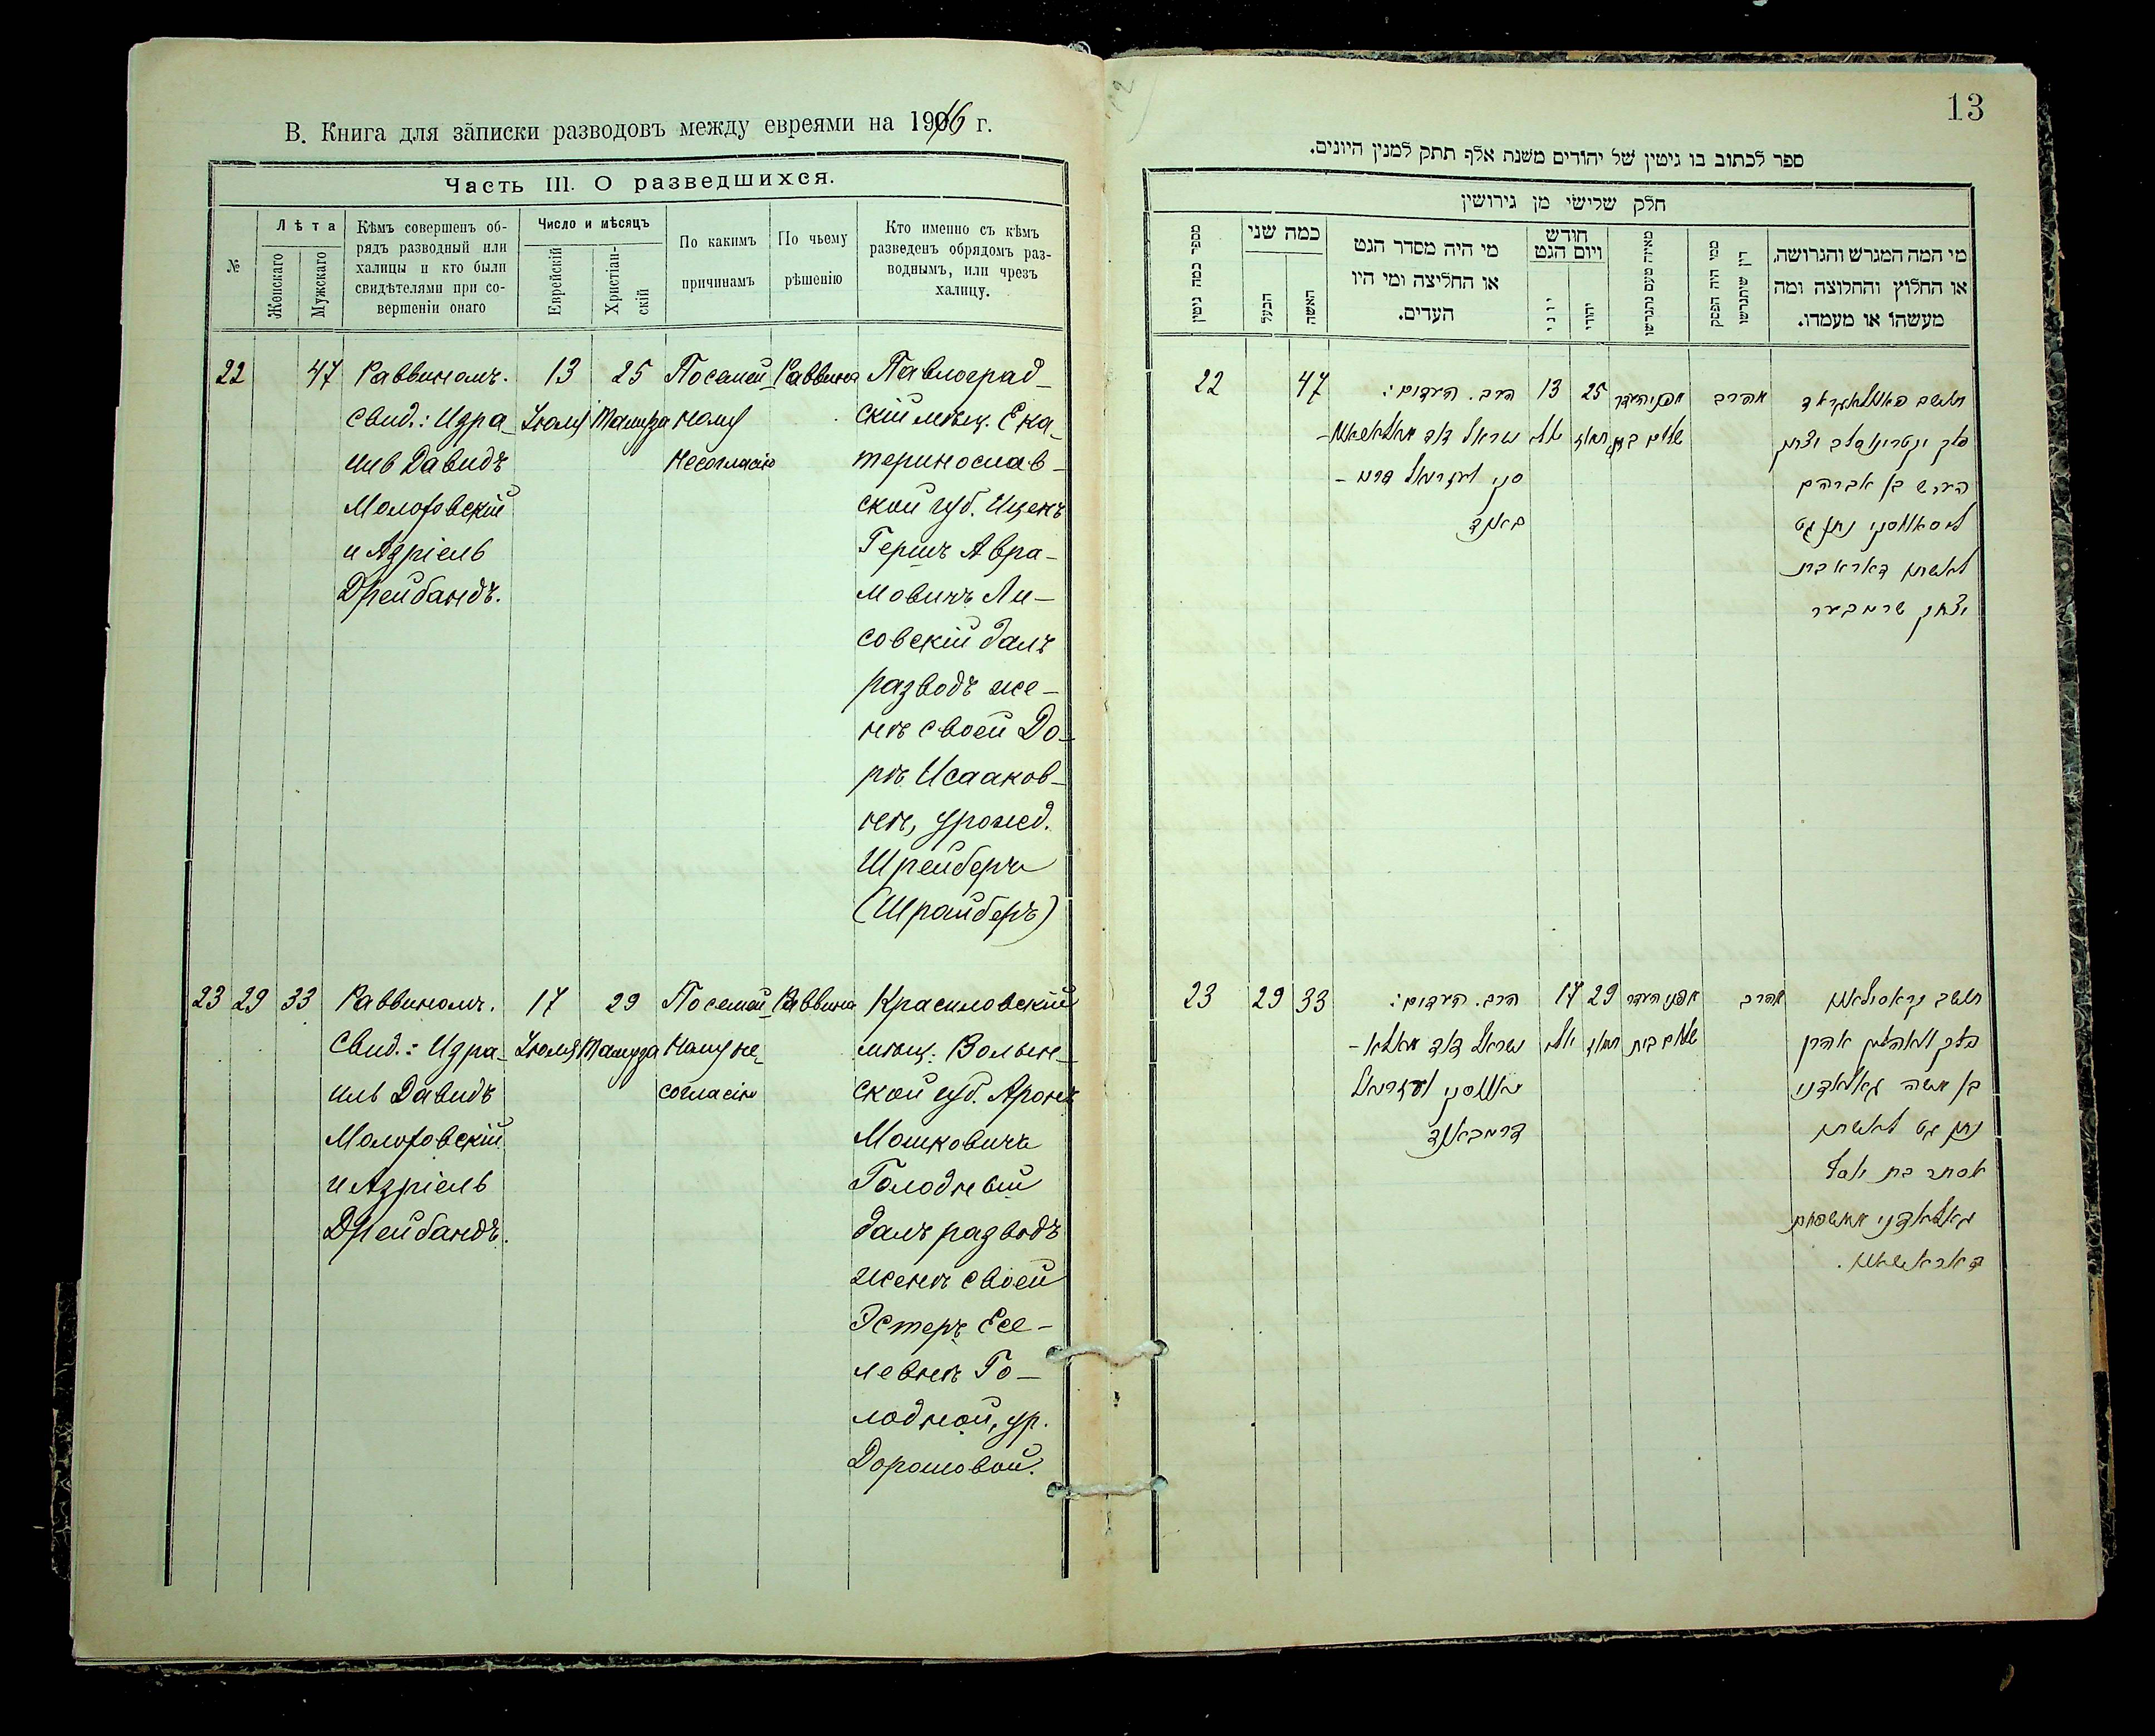 В. Книга для записки разводовъ между евреями на 1916 г.
Часть III. О разведшихся.
№
Лѣта
Женскаго
Мужскаго
Кѣмъ совершенъ об-
рядъ разводный или
халицы и кто были
свидѣтелями при со-
вершеніи онаго
Число и мѣсяцъ
Еврейскій
Христіан-
скій
По какимъ
причинамъ
По чьему
рѣшенію
Кто именно съ кѣмъ
разведенъ обрядомъ раз-
воднымъ, или чрезъ
халицу.
22
47
Раввиномъ.
Свид.: Изра-
иль Давидъ
Молотовскій
и Азріель
Дрейбандъ.
13
Іюля
25
Тамуза
По семей-
ному
несогласію
Раввина
Павлоград-
скій мѣщ. Ека-
теринослав-
ской губ. Ицекъ
Гершъ Авра-
мовичъ Ли-
совскій далъ
разводъ же-
нѣ своей До-
рѣ Исааков-
нѣ, урожд.
Шрейберъ
(Шрайберъ)
23
29
33
Раввиномъ.
Свид.: Изра-
иль Давидъ
Молотовскій
и Азріель
Дрейбандъ.
17
Іюля
29
Тамуза
По семей-
ному не-
согласію
Раввина
Красиловскій
мѣщ. Волын-
ской губ. Аронъ
Мошковичъ
Голодный
далъ разводъ
женѣ своей
Эстеръ Есе-
левнѣ Го-
лодной, ур.
Дорошовой.
13
ספר לכתוב בו גיטין של יהודים משנת אלף תתק למנין היונים.
חלק שלישי מן גירושין
מספר כמה גיטין
כמה שני
הבעל
האשה
מי היה מסדר הגט
או החליצה ומי היו
העדים.
חודש
ויום הגט
יוני
יהודי
מאיזה טעם נתגרשו
ממי היה הפסק
דין שיתגרשו
מי המה המגרש והגרושה,
או החלוץ והחלוצה ומה
מעשהו או מעמדו.
22
47
הרב. העדים:
ישראל דוד
13
25
תמוז
מפני העדר
שלום בית
מהרב
הערש בן אברהם
נתן גט
לאשתו דארא בת
יצחק שרייבער
23
29
33
הרב. העדים:
ישראל דוד
דרייבאנד
17
29
תמוז
מפני העדר
שלום בית
מהרב
אהרן
בן משה גאלאדני
נתן גט לאשתו
אסתר בת
גאלאדני ממשפחת
דאראשאוו.